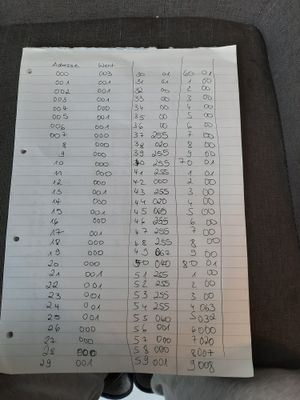 Adresse Wert
000 003 30 01 60 01
001 001 31 01 1 00
002 001 32 00 2 00
003 001 33 00 3 00
004 000 34 00 4 00
005 001 35 00 5 00
006 001 36 00 6 00
007 000 37 255 7 00
8 000 38 020 8 00
9 000 39 255 9 00
10 000 40 255 70 01
11 000 41 255 1 01
12 000 42 000 2 00
13 001 43 255 3 00
14 000 44 020 4 00
15 001 45 5 00
16 000 46 255 6 00
17 001 47 255 7 00
18 000 48 255 8 00
19 000 49 067 9 00
20 000 50 040 80 01
21 001 51 255 1 00
22 001 52 255 2 00
23 001 53 255 3 00
24 001 54 255 4 063
25 001 55 060 5 032
26 000 56 001 6 000
27 000 57 000 7 020
28 000 58 000 8 007
29 001 59 001 9 008